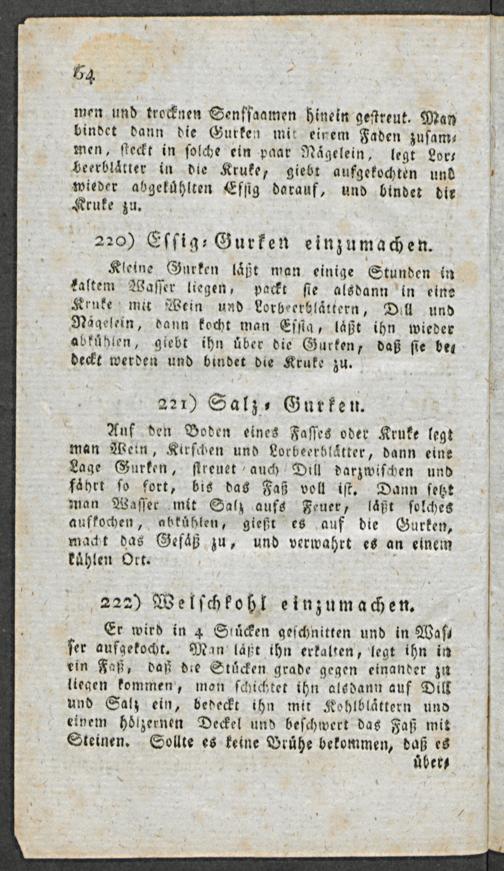 64
men und trocknen Senfsaamen hinein gestreut. Man
bindet dann die Gurken mit einem Faden zusam⸗
men, steckt in solche ein paar Nägelein, legt Lor⸗
beerblätter in die Kruke, giebt aufgekochten und
wieder abgekühlten Essig darauf, und bindet die
Kruke zu.
220) Essig⸗Gurken einzumachen.
Kleine Gurken läßt man einige Stunden in
kaltem Wasser liegen, packt sie alsdann in eine
Kruke mit Wein und Lorbeerblättern, Dill und
Nägelein, dann kocht man Essig, läßt ihn wieder
abkühlen, giebt ihn über die Gurken, daß sie be⸗
deckt werden und bindet die Kruke zu.
221) Salz⸗Gurken.
Auf den Boden eines Fasses oder Kruke legt
man Wein, Kirschen und Lorbeerblätter, dann eine
Lage Gurken, streuet auch Dill darzwischen und
fährt so fort, bis das Faß voll ist. Dann setzt
man Wasser mit Salz aufs Feuer, läßt solches
aufkochen, abkühlen, gießt es auf die Gurken,
macht das Gefäß zu, und verwahrt es an einem
kühlen Ort.
222) Welschkohl einzumachen.
Er wird in 4 Stücken geschnitten und in Was⸗
ser aufgekocht. Man läßt ihn erkalten, legt ihn in
ein Faß, daß die Stücken grade gegen einander zu
liegen kommen, man schichtet ihn alsdann auf Dill
und Salz ein, bedeckt ihn mit Kohlblättern und
einem hölzernen Deckel und beschwert das Faß mit
Steinen. Sollte es keine Brühe bekommen, daß es
über⸗